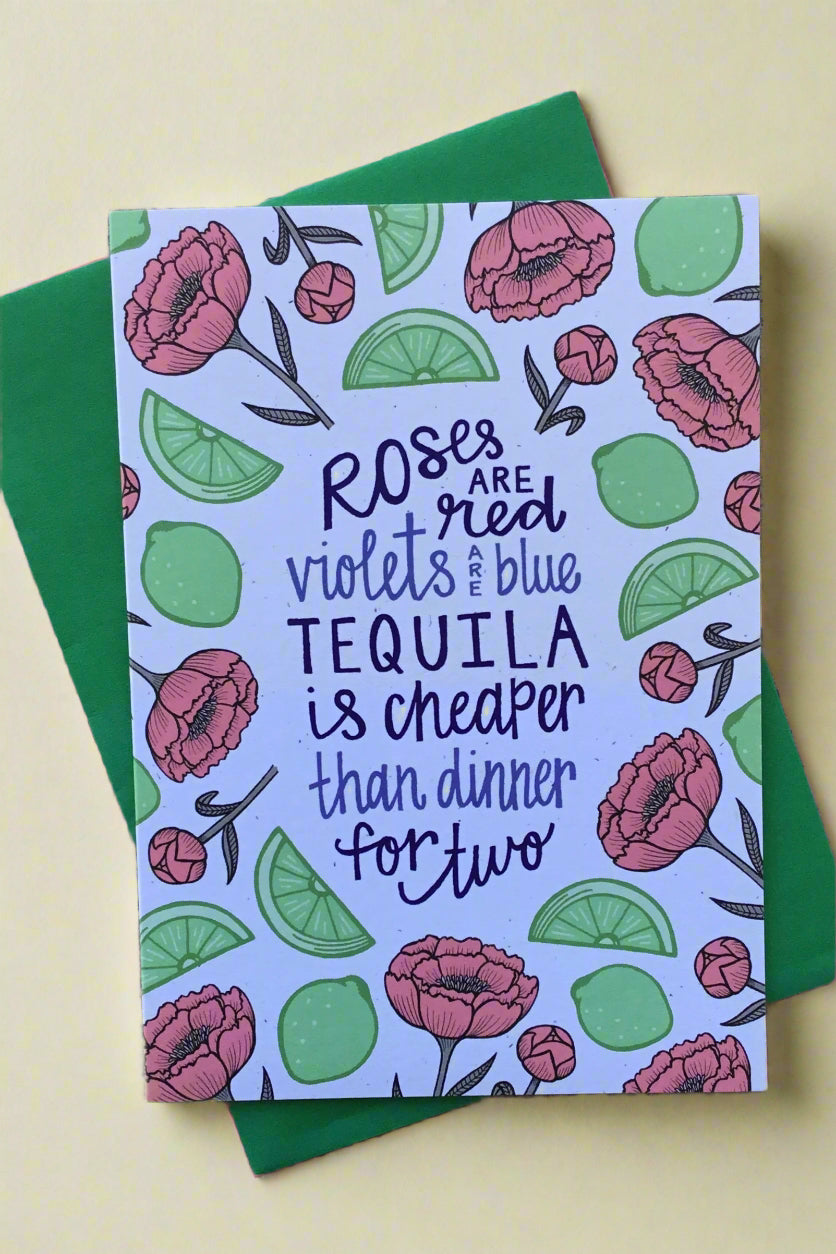 Roses
ARE
red
violets ARE blue
TEQUILA
is cheaper
than dinner
for two